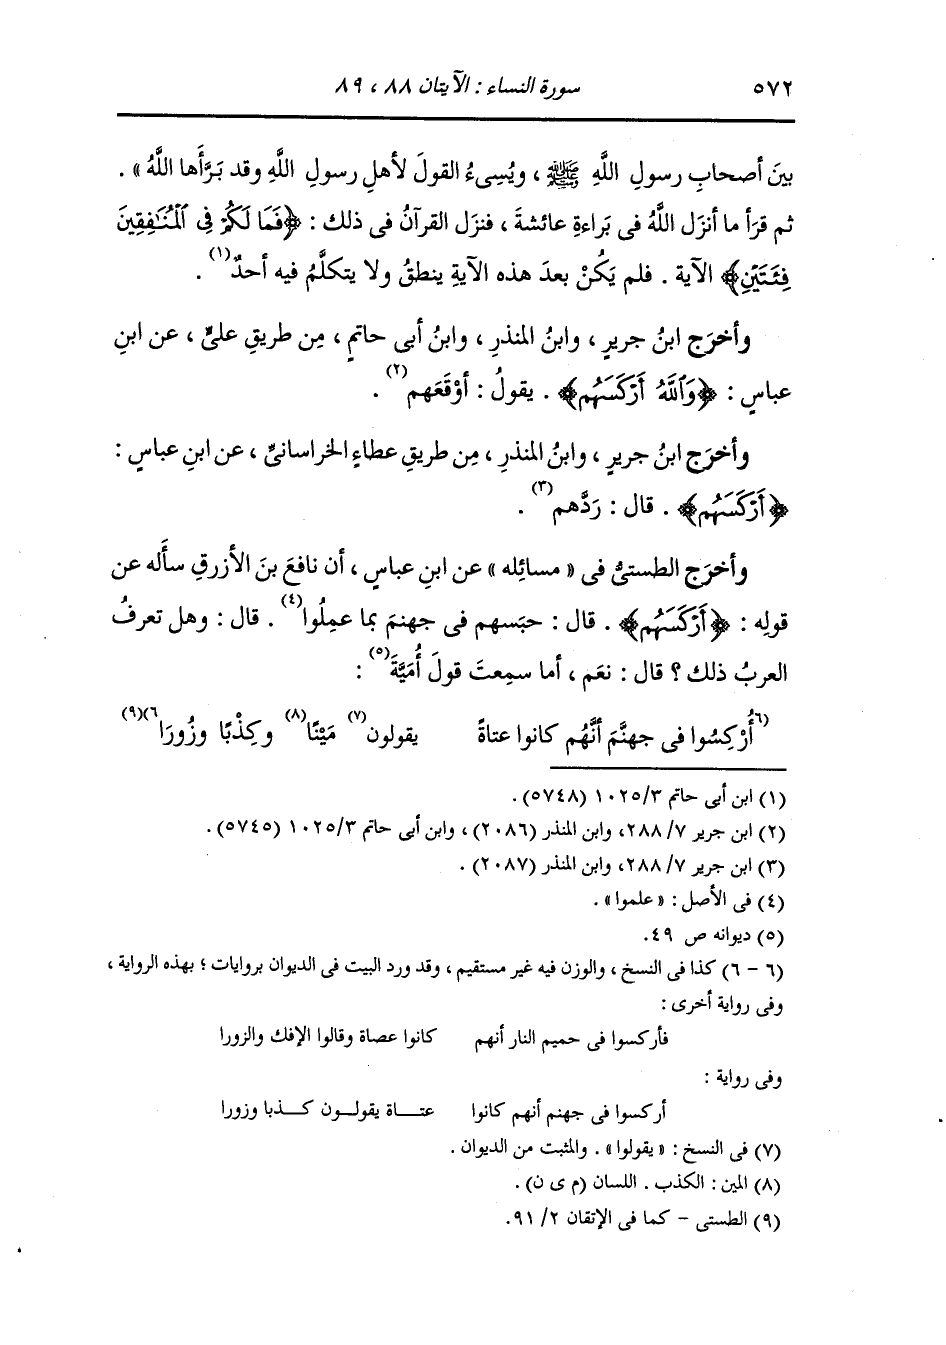 ٥٧٢ سورة النساء : الآيتان ٨٨ ، ٨٩
بينَ أصحابِ رسولِ اللَّهِ ﷺ ، ويُسِىءُ القولَ لأهلِ رسولِ اللَّهِ وقد بَرَّأَها اللَّهُ » .
ثم قرَأ ما أنزَل اللَّهُ فى بَراءةِ عائشةَ ، فنزَل القرآنُ فى ذلك : ﴿فَمَا لَكُمْ فِى ٱلْمُنَٰفِقِينَ
فِئَتَيْنِ﴾ الآية . فلم يَكُنْ بعدَ هذه الآيةِ ينطقُ ولا يتكلَّمُ فيه أحدٌ(١) .
وأخرَج ابنُ جريرٍ ، وابنُ المنذرِ ، وابنُ أبى حاتمٍ ، مِن طريقِ علىٍّ ، عن ابنِ
عباسٍ : ﴿وَٱللَّهُ أَرْكَسَهُم﴾ . يقولُ : أوْقَعَهم(٢) .
وأخرَج ابنُ جريرٍ ، وابنُ المنذرِ ، مِن طريقِ عطاءٍ الخراسانىِّ ، عن ابنِ عباسٍ :
﴿أَرْكَسَهُم﴾ . قال : رَدَّهم(٣) .
وأخرَج الطستىُّ فى « مسائِله » عن ابنِ عباسٍ ، أن نافعَ بنَ الأزرقِ سأَله عن
قولِه : ﴿أَرْكَسَهُم﴾ . قال : حبَسهم فى جهنمَ بما عمِلُوا(٤) . قال : وهل تعرفُ
العربُ ذلك ؟ قال : نعَم ، أما سمِعتَ قولَ أُمَيَّةَ(٥) :
(٦أُرْكِسُوا فى جهنَّمَ أنَّهُم كانوا عتاةً يقولون(٧) مَيْنًا(٨) وكِذْبًا وزُورَا٦)(٩)
(١) ابن أبى حاتم ١٠٢٥/٣ (٥٧٤٨).
(٢) ابن جرير ٧/ ٢٨٨، وابن المنذر (٢٠٨٦) ، وابن أبى حاتم ١٠٢٥/٣ (٥٧٤٥).
(٣) ابن جرير ٧/ ٢٨٨، وابن المنذر (٢٠٨٧) .
(٤) فى الأصل : « علموا» .
(٥) ديوانه ص ٤٩.
(٦ - ٦) كذا فى النسخ ، والوزن فيه غير مستقيم ، وقد ورد البيت فى الديوان بروايات ؛ بهذه الرواية ،
وفى رواية أخرى :
فأركسوا فى حميم النار أنهم كانوا عصاة وقالوا الإفك والزورا
وفى رواية :
أركسوا فى جهنم أنهم كانوا عتـــاة يقولــون كــذبا وزورا
(٧) فى النسخ : « يقولوا» . والمثبت من الديوان .
(٨) المين : الكذب . اللسان (م ى ن) .
(٩) الطستى - كما فى الإتقان ٢/ ٩١.